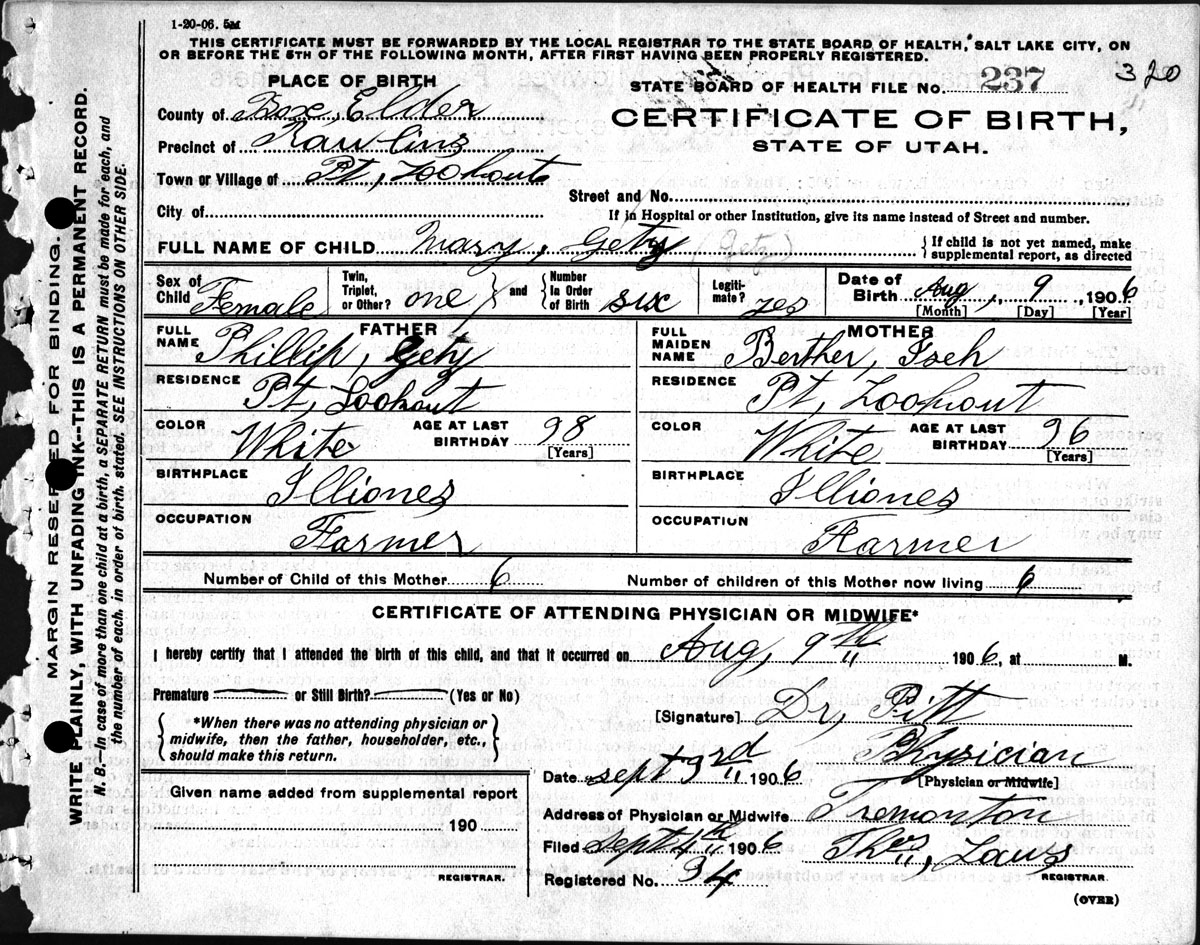 1-20-06. 5M
THIS CERTIFICATE MUST BE FORWARDED BY THE LOCAL REGISTRAR TO THE STATE BOARD OF HEALTH, SALT LAKE CITY, ON
OR BEFORE THE 5TH OF THE FOLLOWING MONTH, AFTER FIRST HAVING BEEN PROPERLY REGISTERED.
PLACE OF BIRTH
STATE BOARD OF HEALTH FILE No. 237 320
County of Box, Elder
CERTIFICATE OF BIRTH,
Precinct of Rawlins
STATE OF UTAH.
Town or Village of Pt, Lookout
Street and No.
City of
If in Hospital or other Institution, give its name instead of Street and number.
FULL NAME OF CHILD Mary, Getz (Getz) { If child is not yet named, make
supplemental report, as directed
Sex of Child Female Twin, Triplet, or Other? one } and { Number In Order of Birth six Legiti-mate? yes Date of Birth Aug, 9, 1906
[Month] [Day] [Year]
FATHER
FULL NAME Phillip, Getz
RESIDENCE Pt, Lookout
COLOR White AGE AT LAST BIRTHDAY 38
[Years]
BIRTHPLACE Illiones
OCCUPATION Farmer
MOTHER
FULL MAIDEN NAME Berther, Isch
RESIDENCE Pt, Lookout
COLOR White AGE AT LAST BIRTHDAY 36
[Years]
BIRTHPLACE Illiones
OCCUPATION Farmer
Number of Child of this Mother 6 Number of children of this Mother now living 6
CERTIFICATE OF ATTENDING PHYSICIAN OR MIDWIFE*
I hereby certify that I attended the birth of this child, and that it occurred on Aug, 9th 1906, at M.
Premature or Still Birth? (Yes or No)
{ *When there was no attending physician or
midwife, then the father, householder, etc.,
should make this return. }
[Signature] Dr, Pitt
Physician
Date Sept 3rd 1906 [Physician or Midwife]
Address of Physician or Midwife Tremonton
Filed Sept 4th 1906 Thos, Laws
REGISTRAR.
Registered No. 34
Given name added from supplemental report
190
REGISTRAR.
(OVER)
MARGIN RESERVED FOR BINDING.
WRITE PLAINLY, WITH UNFADING INK--THIS IS A PERMANENT RECORD.
N. B.—In case of more than one child at a birth, a SEPARATE RETURN must be made for each, and
the number of each, in order of birth, stated. SEE INSTRUCTIONS ON OTHER SIDE.